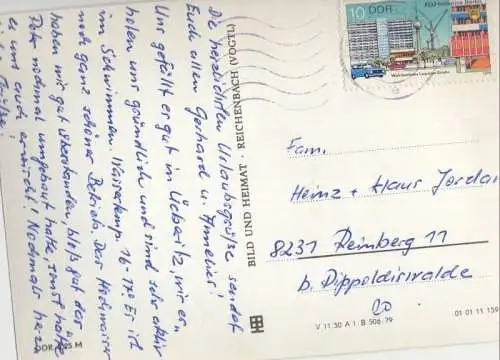 Die herzlichsten Urlaubsgrüße sendet
Euch allen Gerhard u. Annelies!
Uns gefällt es gut in Ückeritz, wir er-
holen uns gründlich und sind sehr aktiv
im Schwimmen. Wassertemp. 16-17°. Es ist
noch ganz schöner Betrieb. Das Hochwasser
haben wir gut überstanden, bloß gut daß
Peter nochmal umgebaut hatte, sonst hätte
es uns auch erwischt! Nochmals herz-
liche Grüße!
BILD UND HEIMAT · REICHENBACH (VOGTL)
DDR M
10 DDR
FDJ-Initiative Berlin
Fam.
Heinz + Klaus Jordan
8231 Reinberg 11
b. Dippoldiswalde
20
V 11 50 A 1 B 506/79
01 01 11 159